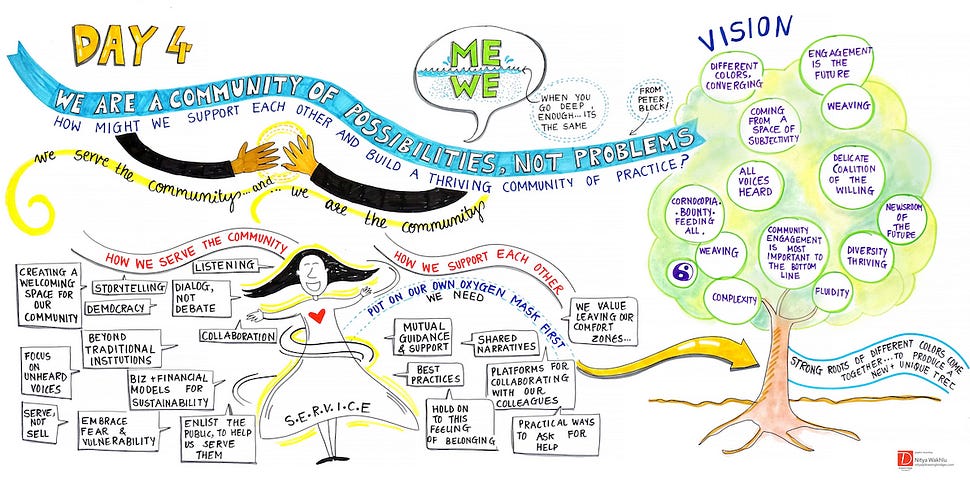 DAY 4
WE ARE A COMMUNITY OF POSSIBILITIES, NOT PROBLEMS
HOW MIGHT WE SUPPORT EACH OTHER AND BUILD A THRIVING COMMUNITY OF PRACTICE?
we serve the community...and...we are the community
ME
WE
WHEN YOU
GO DEEP
ENOUGH...ITS
THE SAME
FROM
PETER
BLOCK!
HOW WE SERVE THE COMMUNITY
CREATING A
WELCOMING
SPACE FOR
OUR
COMMUNITY
STORYTELLING
LISTENING
DEMOCRACY
DIALOG,
NOT
DEBATE
COLLABORATION
BEYOND
TRADITIONAL
INSTITUTIONS
FOCUS
ON
UNHEARD
VOICES
BIZ + FINANCIAL
MODELS FOR
SUSTAINABILITY
SERVE,
NOT
SELL
EMBRACE
FEAR &
VULNERABILITY
ENLIST THE
PUBLIC, TO HELP
US SERVE
THEM
S.E.R.V.I.C.E
HOW WE SUPPORT EACH OTHER
PUT ON OUR OWN OXYGEN MASK FIRST
WE NEED
MUTUAL
GUIDANCE
& SUPPORT
SHARED
NARRATIVES
WE VALUE
LEAVING OUR
COMFORT
ZONES...
BEST
PRACTICES
PLATFORMS FOR
COLLABORATING
WITH OUR
COLLEAGUES
HOLD ON
TO THIS
FEELING
OF BELONGING
PRACTICAL WAYS
TO ASK FOR
HELP
VISION
DIFFERENT
COLORS,
CONVERGING
ENGAGEMENT
IS THE
FUTURE
COMING
FROM A
SPACE OF
SUBJECTIVITY
WEAVING
ALL
VOICES
HEARD
DELICATE
COALITION
OF THE
WILLING
CORNOCOPIA.
. BOUNTY.
FEEDING
ALL.
NEWSROOM
OF THE
FUTURE
WEAVING
COMMUNITY
ENGAGEMENT
IS MOST
IMPORTANT TO
THE BOTTOM
LINE
DIVERSITY
THRIVING
COMPLEXITY
FLUIDITY
STRONG ROOTS OF DIFFERENT COLORS COME
TOGETHER...TO PRODUCE A
NEW + UNIQUE TREE
Nitya Wakhlu